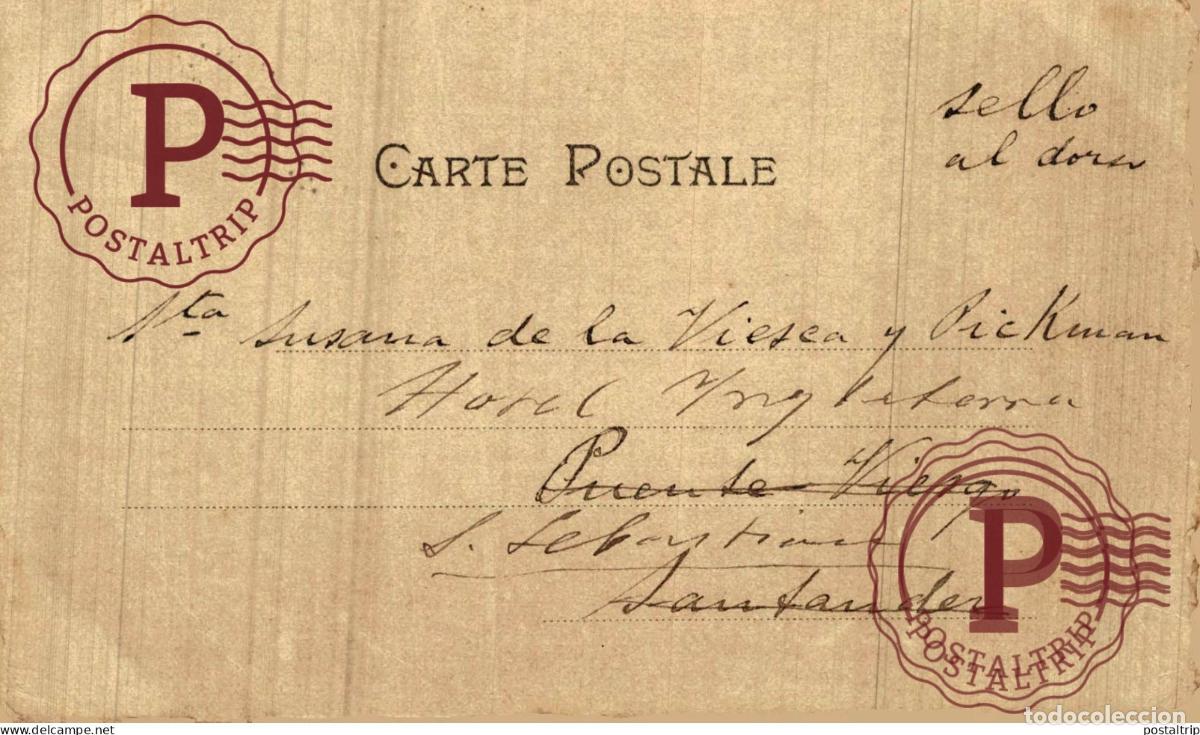 P
POSTALTRIP
CARTE POSTALE
sello
al dorso
Sta Susana de la Viesca y Pickman
Hotel Yngleterra
Puente Viesgo
S. Sebastian
Santander
P
POSTALTRIP
POSTALTRIP
todocoleccion
www.delcampe.net
postaltrip